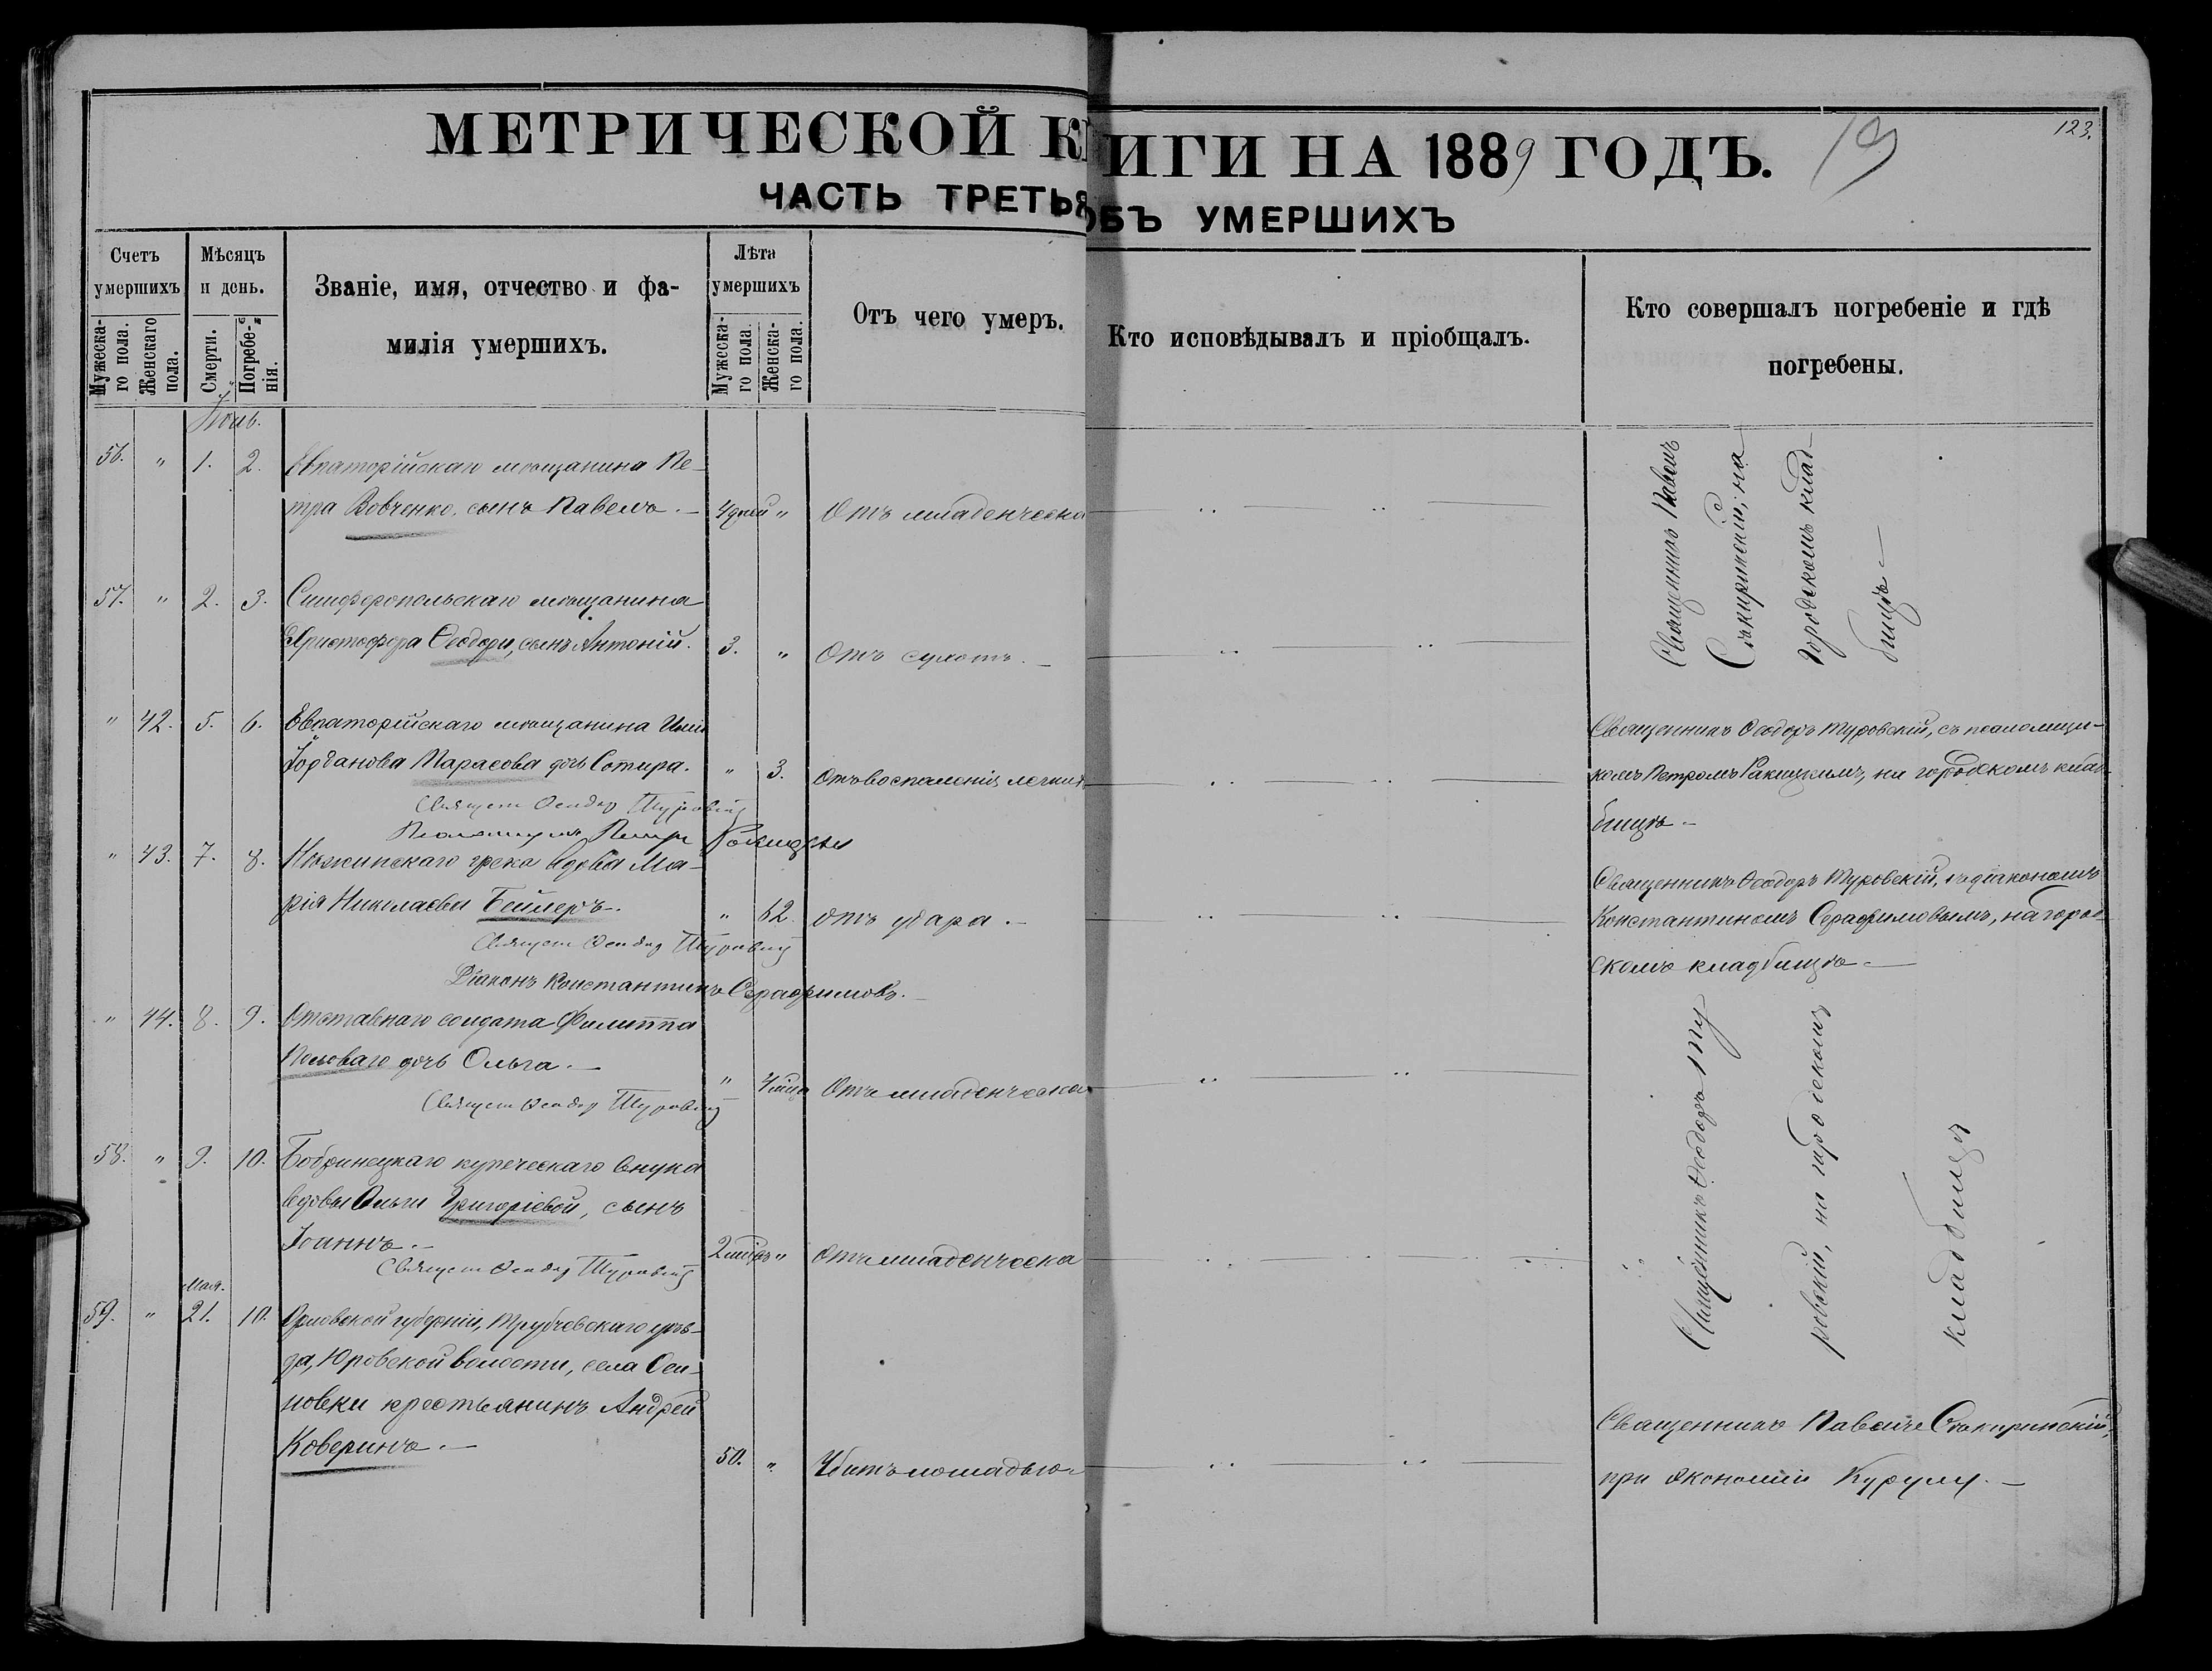 МЕТРИЧЕСКОЙ КНИГИ НА 1889 ГОДЪ.
19
123.
ЧАСТЬ ТРЕТЬЯ ОБЪ УМЕРШИХЪ
Счетъ умершихъ
Мужескаго пола.
Женскаго пола.
Мѣсяцъ и день.
Смерти.
Погребенія.
Званіе, имя, отчество и фамилія умершихъ.
Лѣта умершихъ
Мужескаго пола.
Женскаго пола.
Отъ чего умеръ.
Кто исповѣдывалъ и пріобщалъ.
Кто совершалъ погребеніе и гдѣ погребены.
56. " 1. 2. Евпаторійскаго мѣщанина Пе-
тра Вовченко, сынъ Павелъ. — 4 дней " Отъ младенческа
Священникъ Павелъ
Сѣкиринскій, на
городскомъ клад-
бищѣ —
57. " 2. 3. Симферопольскаго мѣщанина
Христофора Ѳеодори, сынъ Антоній. 3. " Отъ сухотъ. —
" 42. 5. 6. Евпаторійскаго мѣщанина
Іорданова Парасева дочь Сотира. " 3. Отъ воспаленія легкихъ
Священникъ Ѳеодоръ Туровскій, съ псаломщи-
комъ Петромъ Ракицкимъ, на городскомъ клад-
бищѣ —
Священ Ѳеодоръ Туровскій
Псаломщикъ Петръ Ракицкій
" 43. 7. 8. Нѣжинскаго грека вдова Ма-
рія Николаева Бейлеръ —. " 62. отъ удара. —
Священникъ Ѳеодоръ Туровскій, съ діакономъ
Константиномъ Серафимовымъ, на город-
скомъ кладбищѣ —
Священ Ѳеодоръ Туровскій
Діаконъ Константинъ Серафимовъ. —
" 44. 8. 9. Отставнаго солдата Филиппа
Поливаго дочь Ольга. — " Отъ младенческа
Священ Ѳеодоръ Туровскій
Священникъ Ѳеодоръ Ту
ровскій, на городскомъ
кладбищѣ
58. " 9. 10. Бобринецкаго купеческаго внука
вдовы Ольги Григоріевой, сынъ
Іоаннъ. — " Отъ младенческа
Священ Ѳеодоръ Туровскій
Мая.
59. " 21. 10. Орловской губерніи, Трубчевскаго уѣз-
да, Юровской волости, села Оси-
новки крестьянинъ Андрей
Коверинъ. — 50. " Убитъ лошадью —
Священникъ Павелъ Сѣкиринскій,
при экономіи